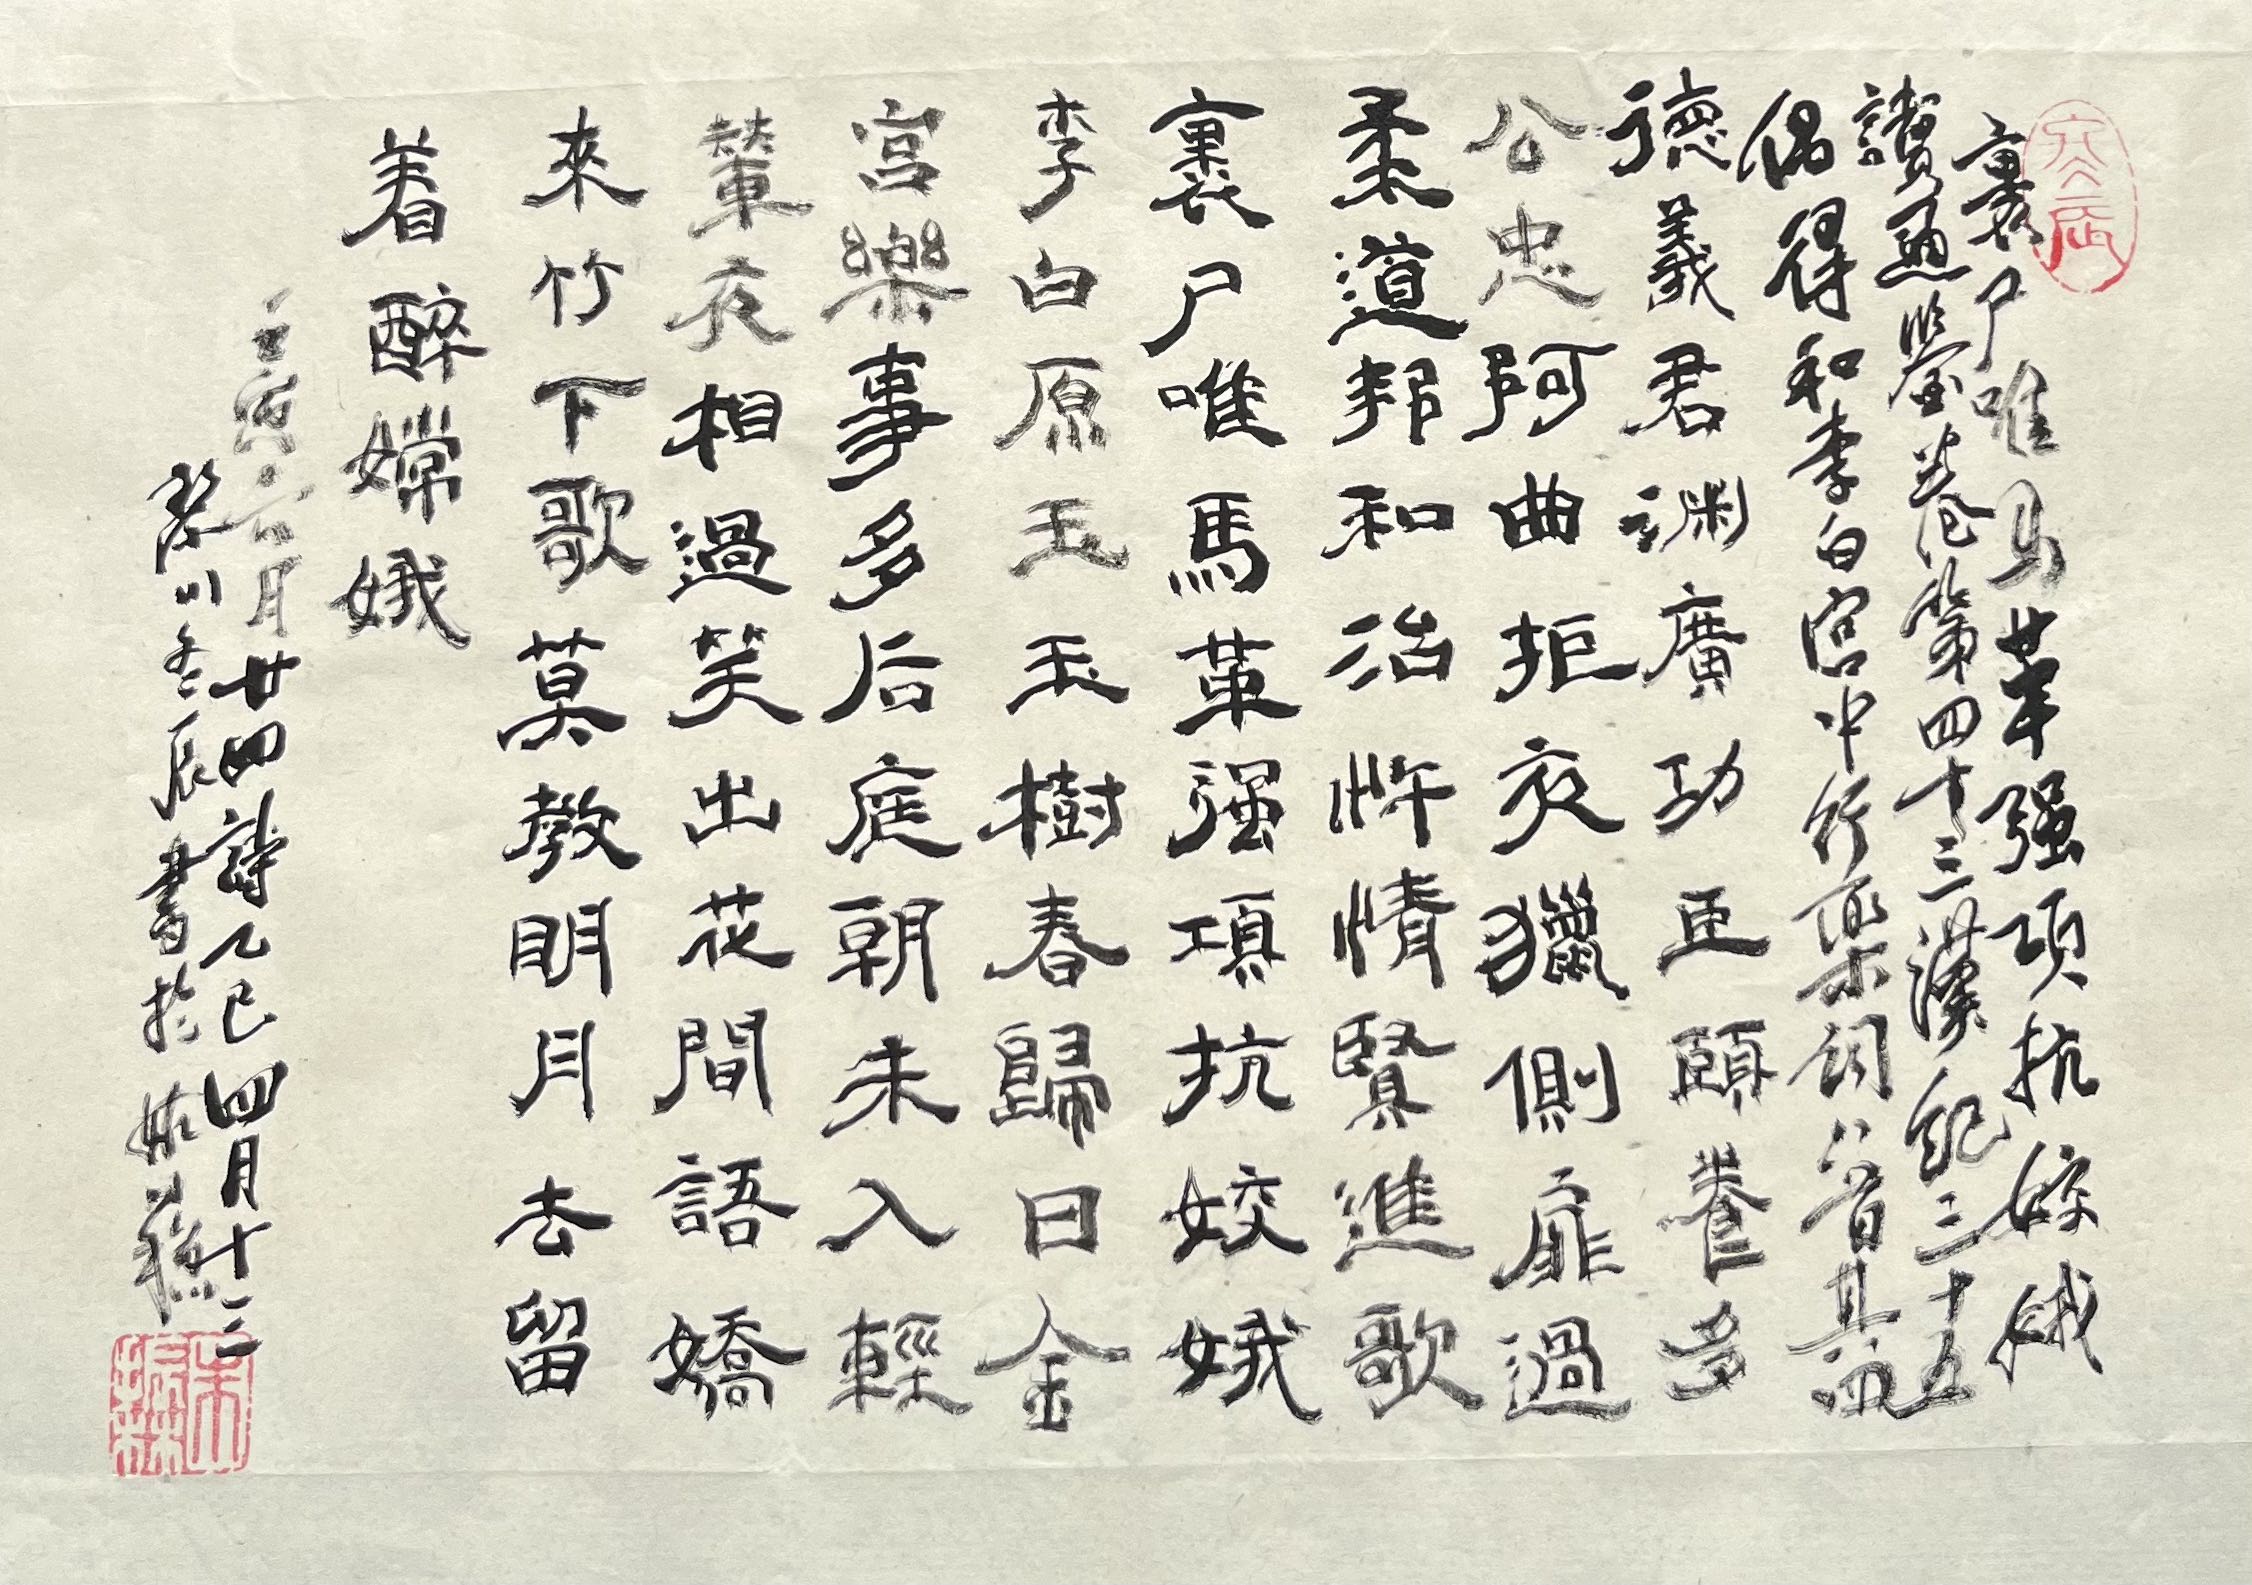 裹尸唯馬革强項抗姣娥
讀通鑒卷第四十三漢紀三十五
偶得和李白宮中行樂詞八首其四
德義君淵廣功臣頤養多
公忠阿曲拒夜獵側扉過
柔道邦和治忤情賢進歌
裹尸唯馬革强項抗姣娥
李白原玉玉樹春歸日金
宮樂事多后庭朝未入輕
輦夜相過笑出花間語嬌
來竹下歌莫教明月去留
着醉嫦娥
壬寅六月廿四詩乙巳四月十三
琴川冬辰書於姑蘇